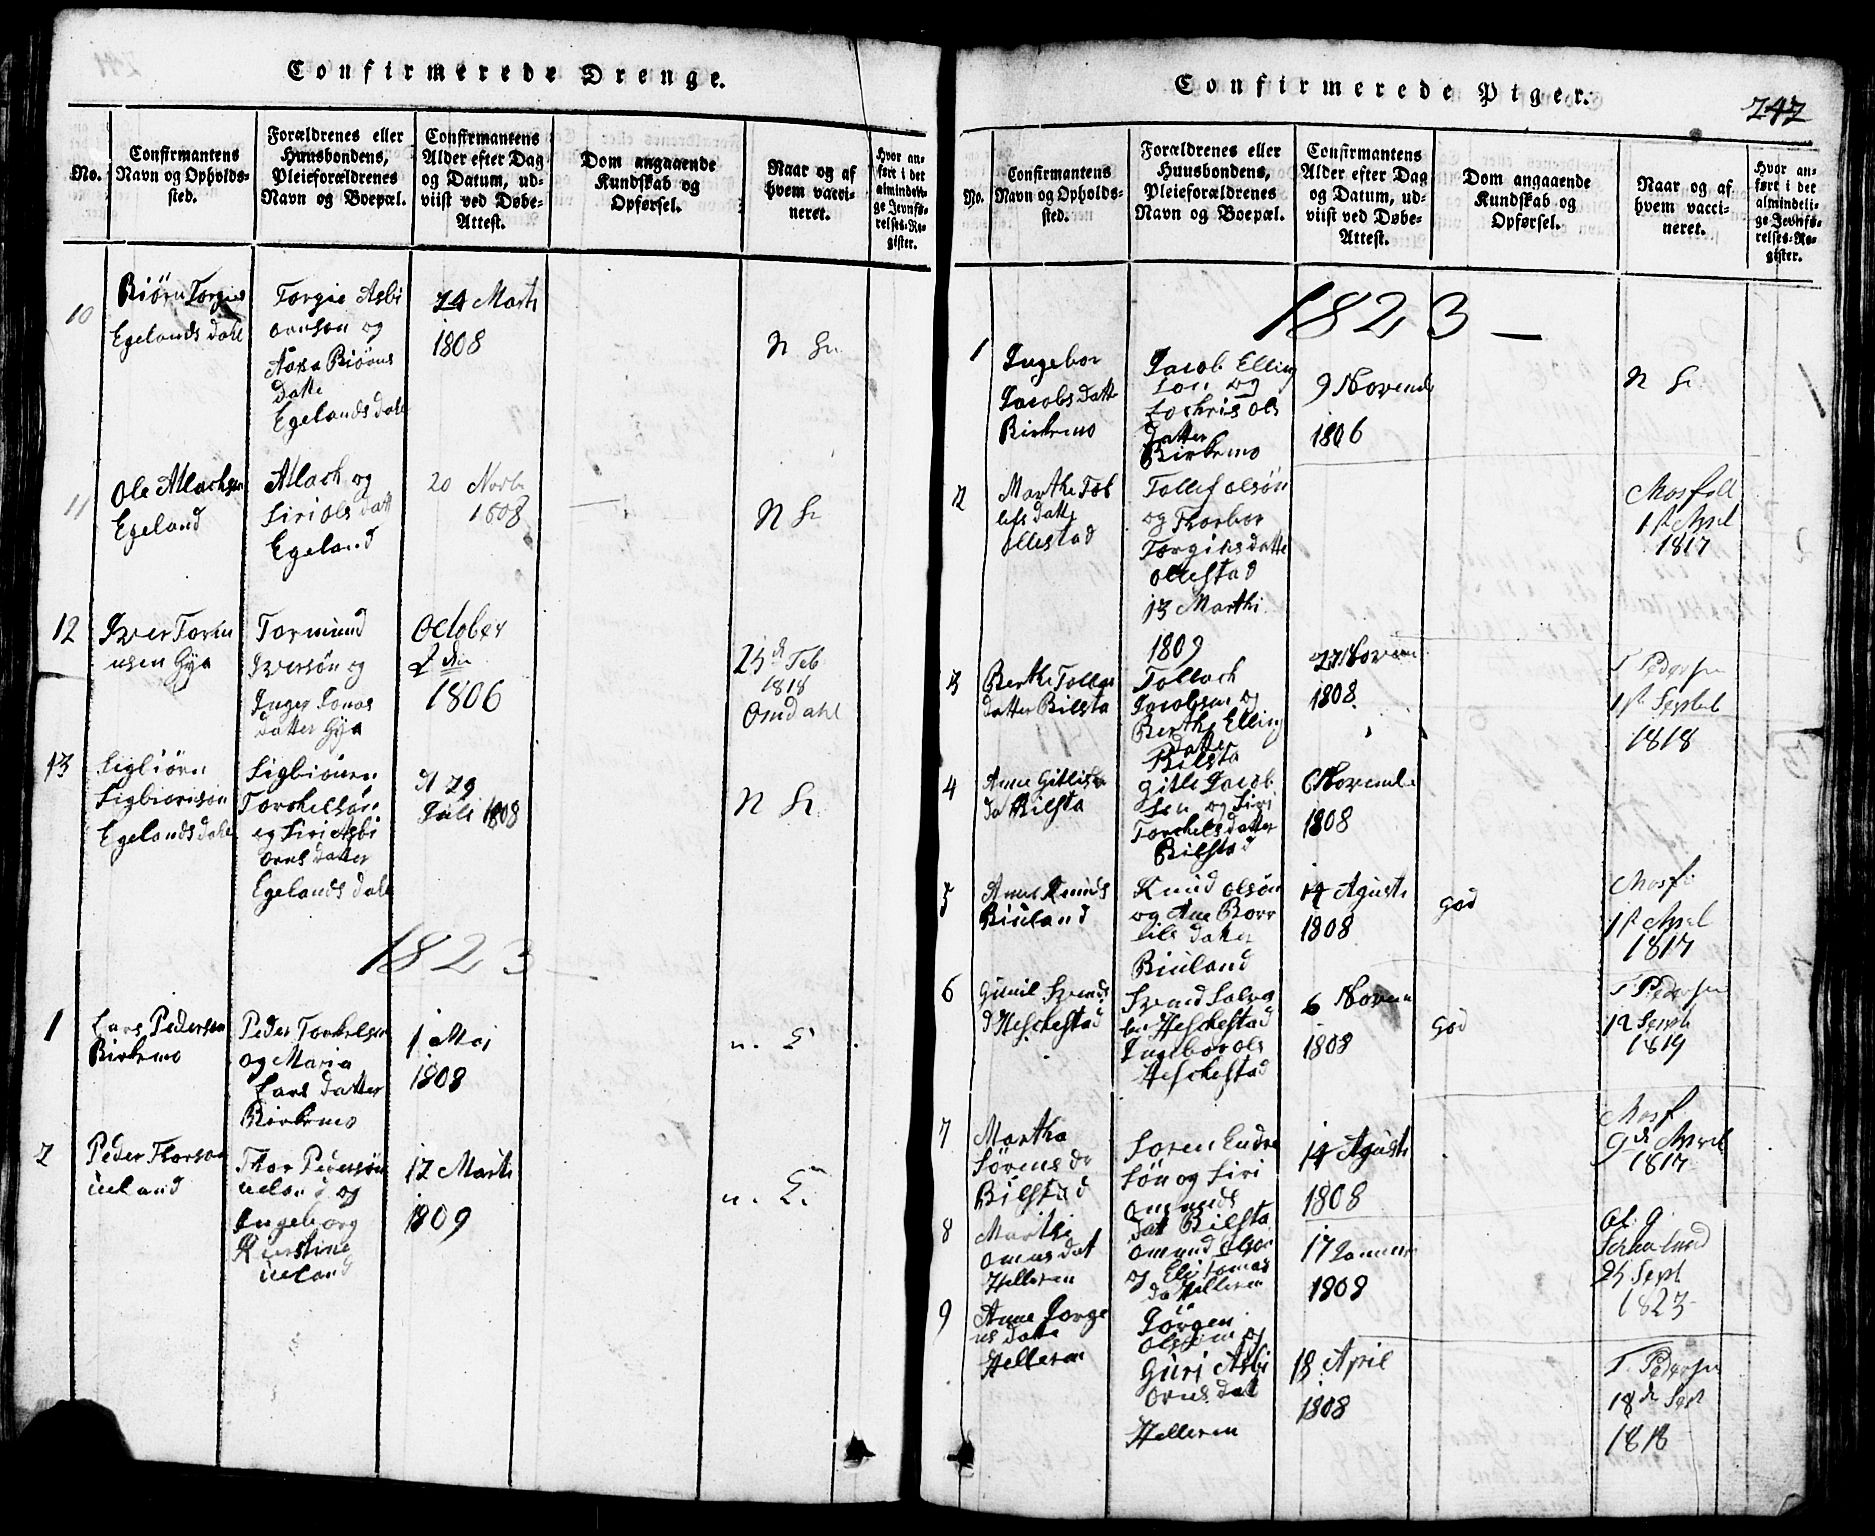 Confirmerede Drenge.
No.
Confirmantens
Navn og Opholds-
sted.
Forældrenes eller
Huusbondens,
Pleieforældrenes
Navn og Boepæl.
Confirmantens
Alder efter Dag
og Datum, ud-
viist ved Døbe-
Attest.
Dom angaaende
Kundskab og
Opførsel.
Naar og af
hvem vacci-
neret.
Hvor an-
ført i det
almindeli-
ge Jevnfø-
relses-Re-
gister.
10
Biørn Torgies
Egelands dahl
Torgie Asbi
ornsøn og
Aasa Biørns
datte
Egelands dahl
24 Marti
1808
N
11
Ole Atlachsen
Egeland
Atlach og
Siri Ols datt
Egeland
20 Novbr
1808
N
12
Iver Torm
unsen Gya
Tormund
Iversøn og
Inger Jonas
datter Gya
October
2 den
1806
25 d Feb
1818
Omdahl
13
Sigbiørn
Sigbiørnsøn
Egelands dahl
Sigbiørn
Torchelsøn
og Siri Asbi
orns datter
Egelands dahl
d 29
Juli 1808
N
1823
1
Lars Pedersen
Birkemo
Peder Torkelsen
og Maria
Lars datter
Birkemo
1 Maj
1808
n.
2
Peder Thorsen
Ueland
Thor Pedersøn
Ueland og
Ingeborg
Kierstine
Ueland
12 Marti
1809
n.
Confirmerede Piger.
242
No.
Confirmantens
Navn og Opholds-
sted.
Forældrenes eller
Huusbondens,
Pleieforældrenes
Navn og Boepæl.
Confirmantens
Alder efter Dag
og Datum, ud-
viist ved Døbe-
Attest.
Dom angaaende
Kundskab og
Opførsel.
Naar og af
hvem vacci-
neret.
Hvor an-
ført i det
almindeli-
ge Jevnfø-
relses-Re-
gister.
1823
1
Ingebor
Jacobs datt
Birkemo
Jacob Elling
søn og
Zachris Ols
datter
Birkemo
9 Novemb
1806
N
2
Marthe Tol
lefs datte
Ollestad
Tollef Olsøn
og Thorbor
Torgihs datte
Ollestad
13 Marthi
1809
Mosfell
1st Aprl
1817
3
Berthe Tollgs
datter Bilsta
Tollach
Jacobsen og
Berthe Elling
datter
Bilsta
27 Novem
1808
T Pedersen
1st Septeb
1818
4
Anne Gitles
da Bilsta
Gitle Jacob
sen og Siri
Torchels datter
Bilstad
6 Novemb
1808
5
Anne Knuds
Biuland
Knud Olsøn
og Ane Borr
lils datter
Biuland
14 Agusti
1808
God
Mosf
1st Aprl
1817
6
Gunil Svends
d Heschestad
Svend Salvo
sen Heschestad
Ingebor Ols
Heschestad
6 Novem
1808
God
T Pedersen
12 Septb
1819
7
Martha
Sørens da
Bilstad
Soren Endre
søn og Siri
Omunds
dat Bilsta
14 Agusti
1808
Mosf
9 d April
1817
8
Marthe
Omunds dat
Helleren
Omund Olson
og Eli Tomas
da Helleren
17 Januar
1808
25 Sept
1823
9
Anne Jorge
ns datte
Helleren
Jörgen
Olssen og
Guri Asbi
orns dat
Helleren
18 April
1808
T. Pedersen
18 de Sept
1818